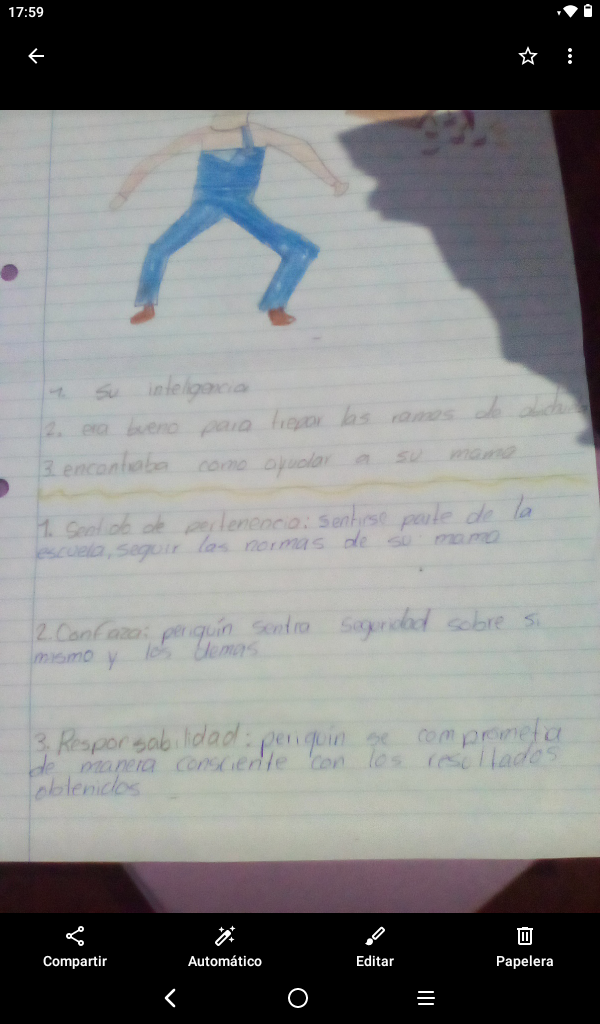 17:59
1. su inteligencia
2. era bueno para trepar las ramas de
3. encontraba como ayudar a su mama
1. Sentido de pertenencia: sentirse parte de la
escuela, seguir las normas de su mama
2. Confaza: periquín sentra seguridad sobre si
mismo y los demas
3. Responsabilidad: periquin se comprometia
de manera consciente con los resultados
obtenidos
Compartir
Automático
Editar
Papelera